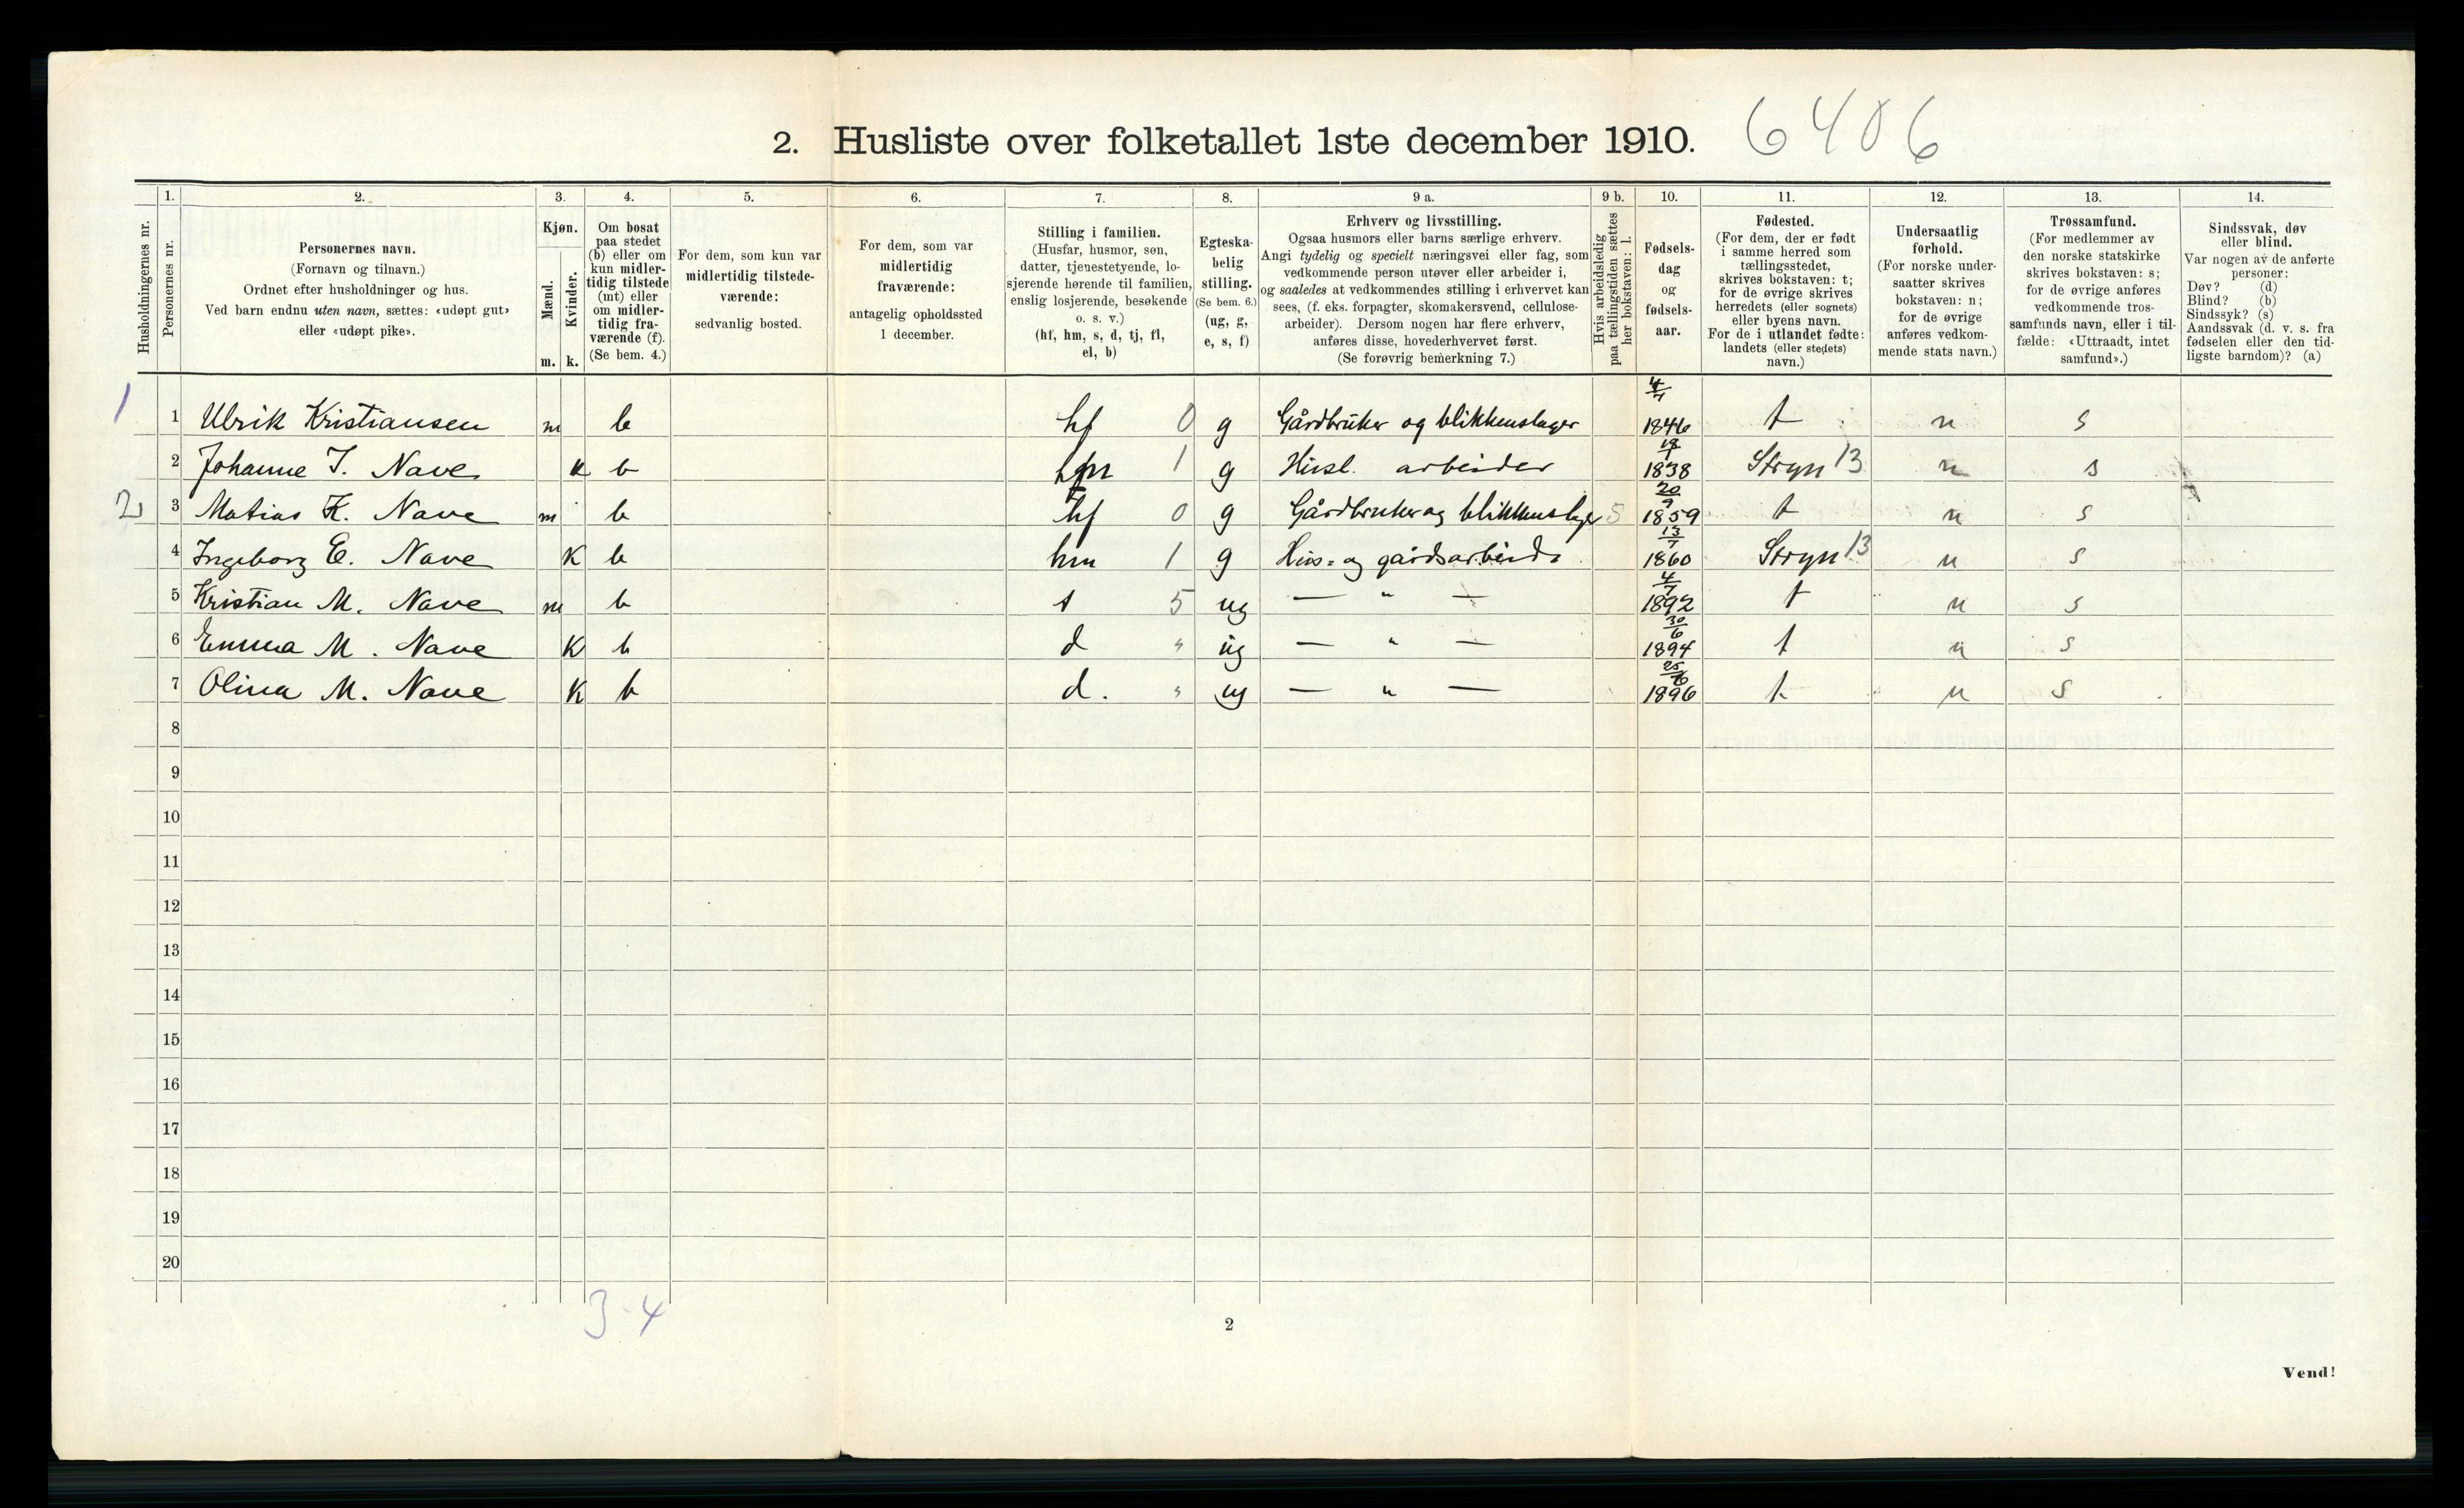 2. Husliste over folketallet 1ste december 1910. 6406
Husholdningernes nr.
1. Personernes nr.
2. Personernes navn. (Fornavn og tilnavn.) Ordnet efter husholdninger og hus. Ved barn endnu uten navn, sættes: «udøpt gut» eller «udøpt pike».
3. Kjøn. Mænd. m. Kvinder. k.
4. Om bosat paa stedet (b) eller om kun midlertidig tilstede (mt) eller om midlertidig fraværende (f). (Se bem. 4.)
5. For dem, som kun var midlertidig tilstedeværende: sedvanlig bosted.
6. For dem, som var midlertidig fraværende: antagelig opholdssted 1 december.
7. Stilling i familien. (Husfar, husmor, søn, datter, tjenestetyende, losjerende hørende til familien, enslig losjerende, besøkende o. s. v.) (hf, hm, s, d, tj, fl, el, b)
8. Egteskabelig stilling. (Se bem. 6.) (ug, g, e, s, f)
9 a. Erhverv og livsstilling. Ogsaa husmors eller barns særlige erhverv. Angi tydelig og specielt næringsvei eller fag, som vedkommende person utøver eller arbeider i, og saaledes at vedkommendes stilling i erhvervet kan sees, (f. eks. forpagter, skomakersvend, cellulosearbeider). Dersom nogen har flere erhverv, anføres disse, hovederhvervet først. (Se forøvrig bemerkning 7.)
9 b. Hvis arbeidsledig paa tællingstiden sættes her bokstaven: l.
10. Fødselsdag og fødselsaar.
11. Fødested. (For dem, der er født i samme herred som tællingsstedet, skrives bokstaven: t; for de øvrige skrives herredets (eller sognets) eller byens navn. For de i utlandet fødte: landets (eller stedets) navn.)
12. Undersaatlig forhold. (For norske undersaatter skrives bokstaven: n; for de øvrige anføres vedkommende stats navn.)
13. Trossamfund. (For medlemmer av den norske statskirke skrives bokstaven: s; for de øvrige anføres vedkommende trossamfunds navn, eller i tilfælde: «Uttraadt, intet samfund».)
14. Sindssvak, døv eller blind. Var nogen av de anførte personer: Døv? (d) Blind? (b) Sindssyk? (s) Aandssvak (d. v. s. fra fødselen eller den tidligste barndom)? (a)
1 1 Ulrik Kristiansen m b hf 0 g Gårdbruker og blikkenslager 4/7 1846 t n s
2 Johanne I. Nave k b hm 1 g Husl. arbeider 1838 Stryn 13 n s
2 3 Matias K. Nave m b hf 0 g Gårdbruker og blikkenslager 5 20/9 1859 t n s
4 Ingeborg E. Nave k b hm 1 g Hus- og gårdsarbeide 13/7 1860 Stryn 13 n s
5 Kristian M. Nave m b s 5 ug — " — 4/7 1892 t n s
6 Emma M. Nave k b d " ug — " — 30/6 1894 t n s
7 Olina M. Nave k b d. " ug — " — 25/6 1896 t n s
8
9
10
11
12
13
14
15
16
17
18
19
20
3-4
2
Vend!